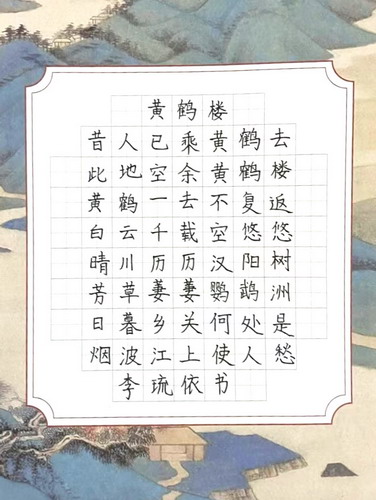 黄鹤楼
昔人已乘黄鹤去
此地空余黄鹤楼
黄鹤一去不复返
白云千载空悠悠
晴川历历汉阳树
芳草萋萋鹦鹉洲
日暮乡关何处是
烟波江上使人愁
李琉依书